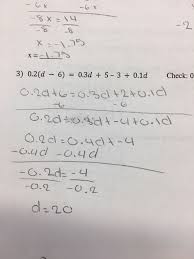 -6x -6x
-8x = 14
-8 -8
x = -1.75
x = -1.75
3) 0.2(d − 6) = 0.3d + 5 − 3 + 0.1d Check: 0
0.2d+6=0.3d+2+0.1d
-6 -6
0.2d=0.3d-4+0.1d
0.2d=0.4d+-4
-0.4d -0.4d
-0.2d=-4
-0.2 -0.2
d=20